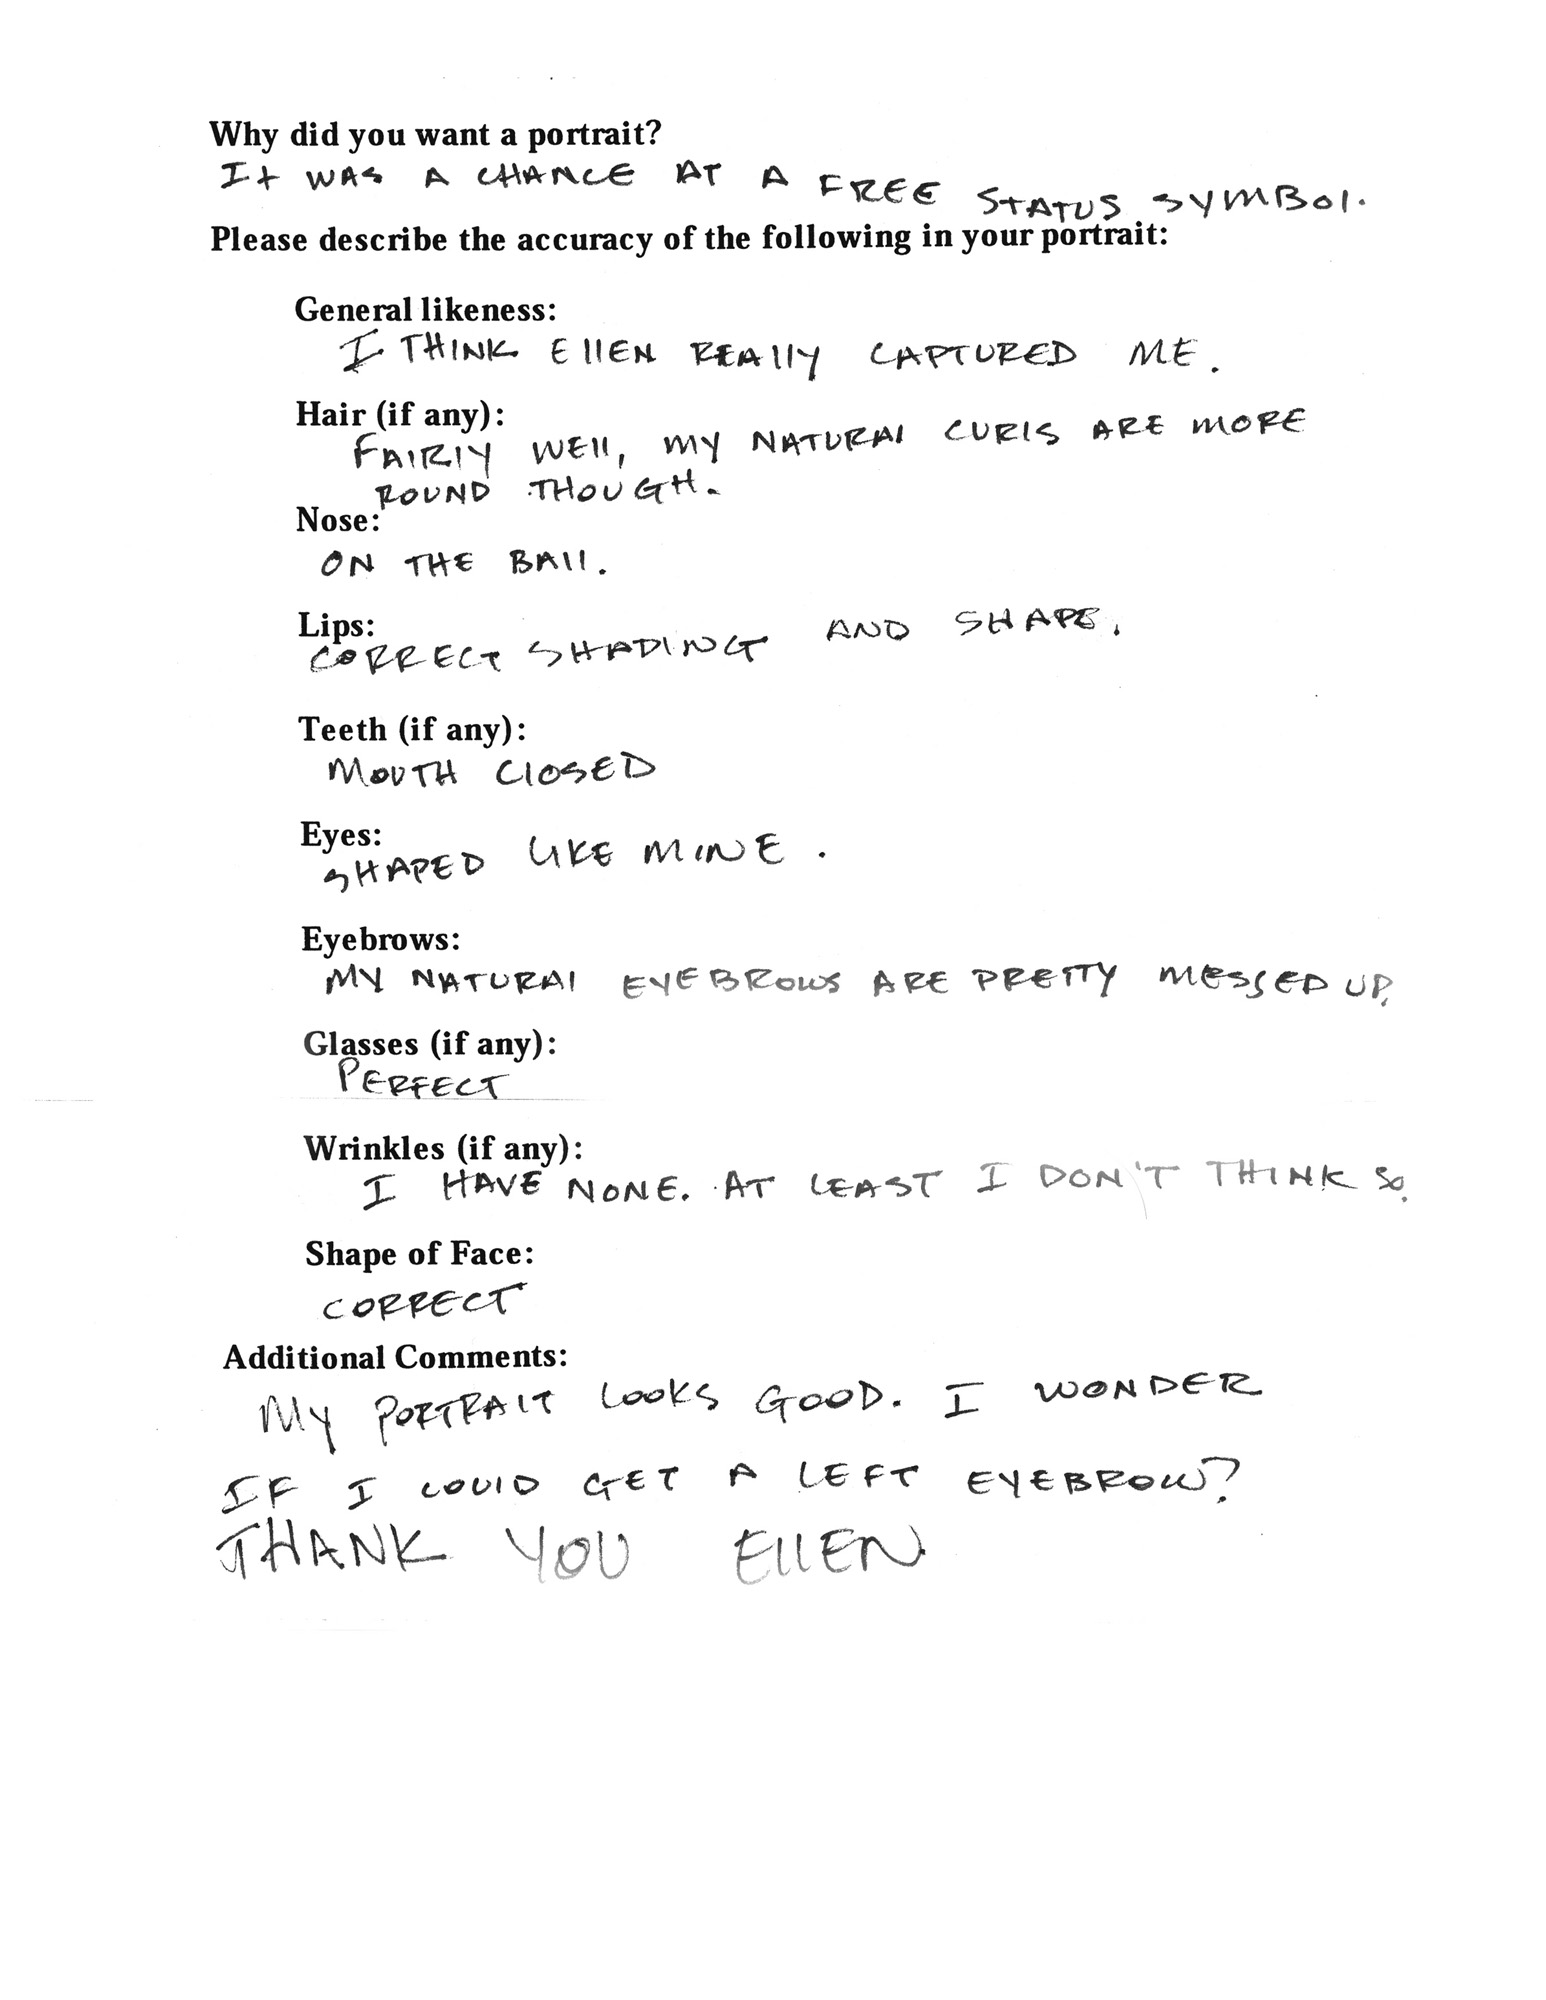 Why did you want a portrait?
It WAS A CHANCE AT A FREE STATUS SYMBOl.
Please describe the accuracy of the following in your portrait:
General likeness:
I THINK EllEN REAllY CAPTURED ME.
Hair (if any):
FAIRlY WEll, MY NATURAl CURlS ARE MORE
ROUND THOUGH.
Nose:
ON THE BAll.
Lips:
CORRECT SHADING AND SHAPE.
Teeth (if any):
MOUTH ClOSED
Eyes:
SHAPED LIKE MINE.
Eyebrows:
MY NATURAl EYEBROWS ARE PRETTY MESSED UP.
Glasses (if any):
PERFECT
Wrinkles (if any):
I HAVE NONE. AT LEAST I DON'T THINK SO.
Shape of Face:
CORRECT
Additional Comments:
MY PORTRAIT LOOKS GOOD. I WONDER
IF I COUlD GET A LEFT EYEBROW?
THANK YOU EllEN